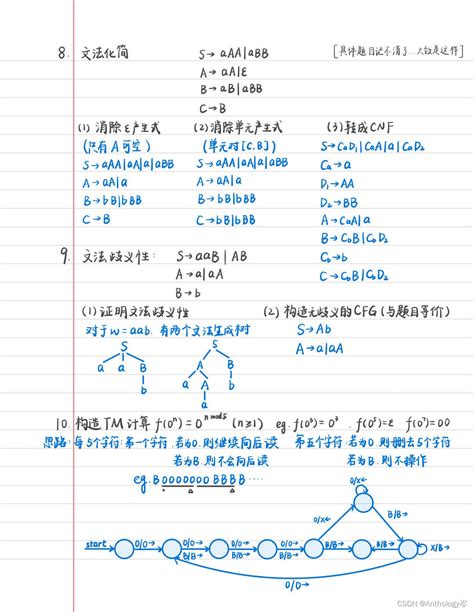 8. 文法化简 S→aAA|aBB [具体题目记不清了..大致是这样]
A→aA|ε
B→bB|bBB
C→B
(1) 消除ε产生式 (2)消除单元产生式 (3)转成CNF
(只有A可空) (单元对[C,B]) S→CaD₁|CaA|a|CaD₂
S→aAA|aA|a|aBB S→aAA|aA|a|aBB Ca→a
A→aA|a A→aA|a D₁→AA
B→bB|bBB B→bB|bBB D₂→BB
C→B C→bB|bBB A→CaA|a
B→CbB|CbD₂
Cb→b
C→CbB|CbD₂
9. 文法歧义性: S→aaB|AB
A→a|aA
B→b
(1)证明文法歧义性 (2) 构造无歧义的CFG(与题目等价)
对于w=aab.有两个文法生成树 S→Ab
A→a|aA
S S
a a B A B
b a A b
a
10. 构造TM计算f(0ⁿ)=0ⁿ ᵐᵒᵈ ⁵ (n≥1) eg.
思路:每5个字符:第一个字符.若为0.则继续向后读 第五个字符:若为0.则删去5个字符
若为B.则不会向后读 若为B.则不操作
eg. B0000000BBBB····
0/X→
0/X← B/B→
start 0/0→ 0/0→ B/B→ B/B→ B/B→ X/B→
0/0→
CSDN @Anthology岑